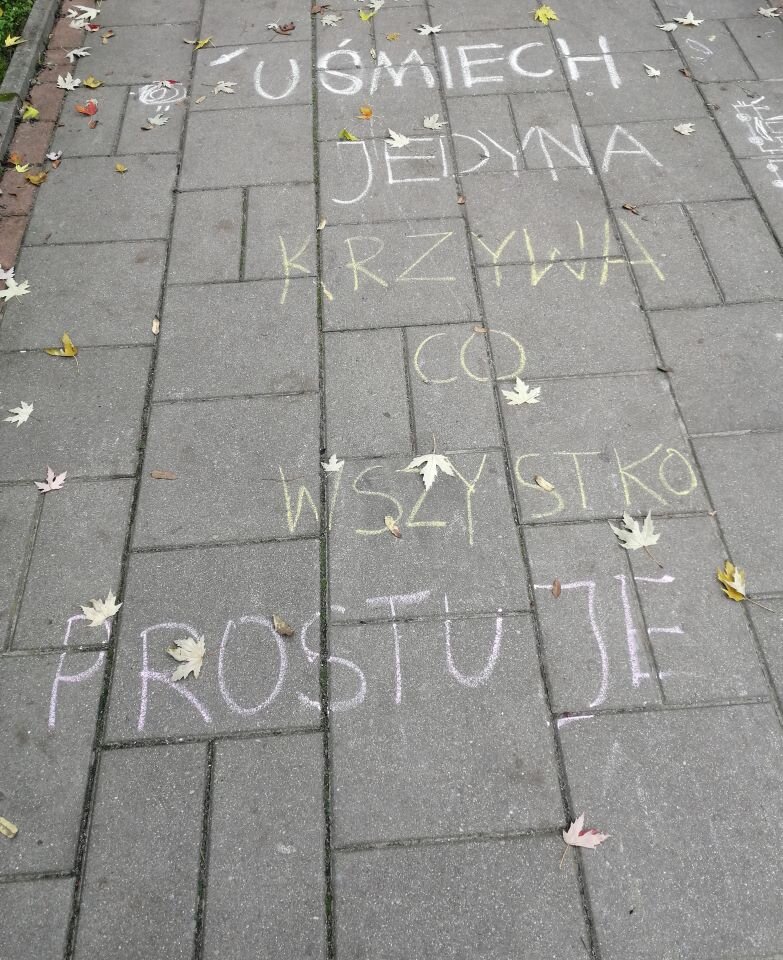 UŚMIECH
JEDYNA
KRZYWA
CO
WSZYSTKO
PROSTUJE